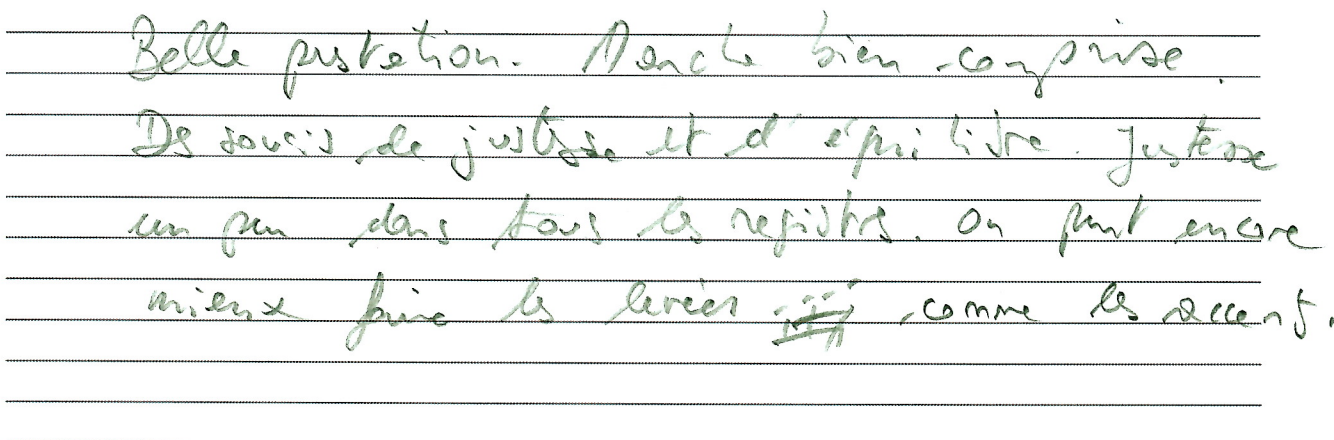 Belle prestation. Marche bien comprise.
Des soucis de justesse et d'équilibre. Justesse
un peu dans tous les registres. On peut encore
mieux faire les levées comme les accents.